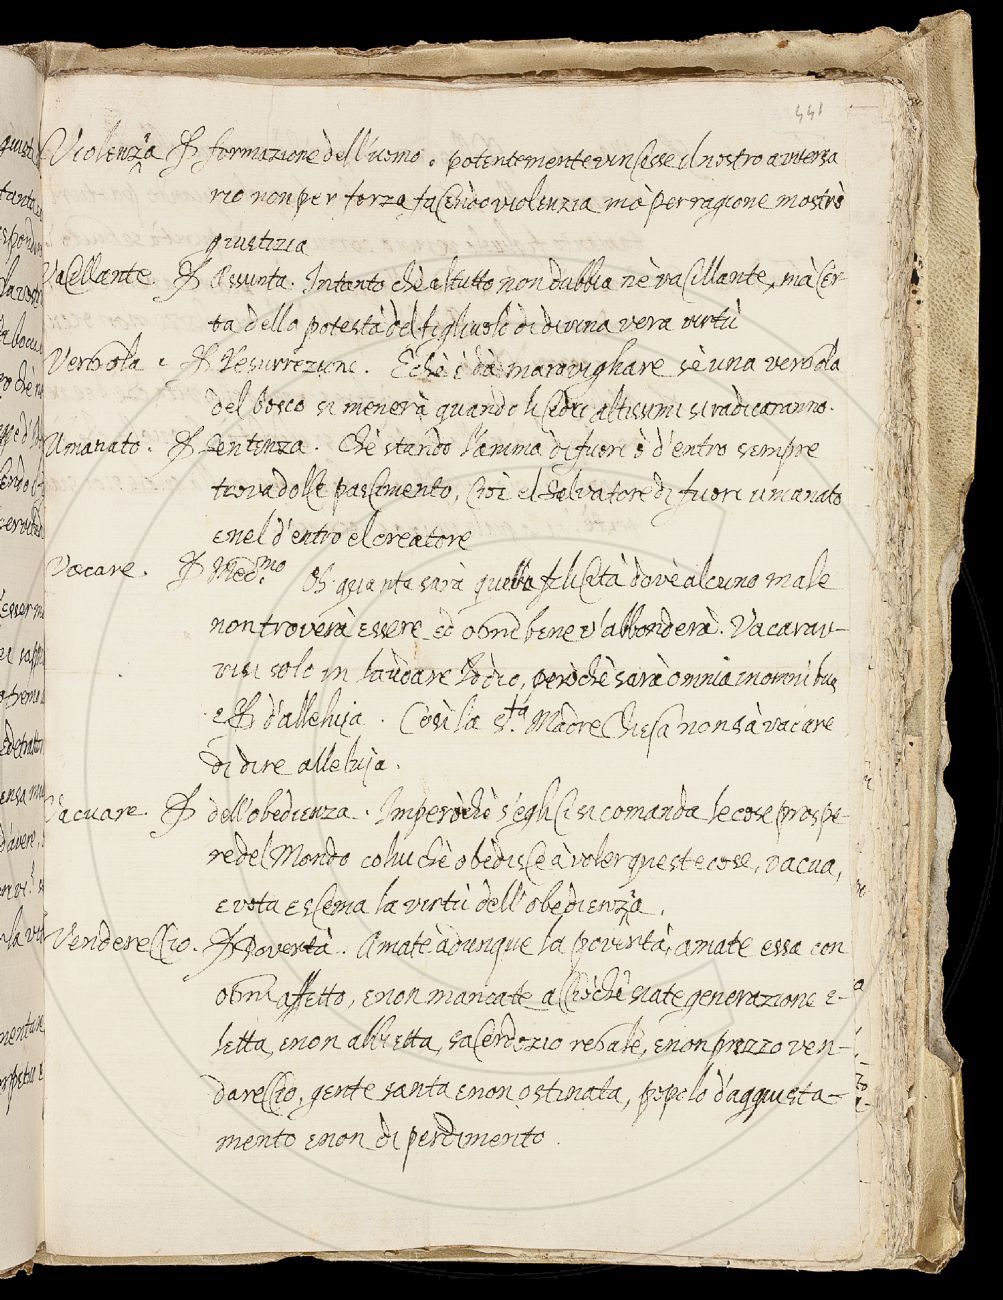 441
Violenzia. formazione dell'uomo. potentemente vincisse el nostro aversa
rio non per forza faciendo violenzia mò per ragione mostrò
giustizia
Vacillante. Assunta. Intanto chè al tutto non dubbia nè vacillante, mà cer-
ta della potestà del figliuolo di divina vera virtù
Vergola. Resurrezione. E chè è dà maravigliare sè una vergola
del bosco si menerà quando li cedri altissimi si radicaranno.
Umanato. Sentenza. Chè stando l'amma di fuori ò d'entro sempre
trova dolce pascimento, cioè el Salvatore di fuori umanato
e nel d'entro el creatore
Vacare. Med.mo Oh quanta sarà quella felicità dovè alcuno male
non troverà essere ed ogni bene v'abbonderà. Vacarav-
visi solo in laudare Iddio, peròchè sarà omnia in omnibus
e d'alleluja. Così la S.ta Madre Chiesa non sà vacare
di dire alleluja.
Vacuare. dell'obedienza. Imperòchè s'egli ci si comanda le cose prospe-
re del Mondo colui chè obedisce à voler queste cose, vacua,
e vota e scema la virtù dell'obedienzia.
Vendereccio. Povertà. Amate adunque la povertà, amate essa con
ogni affetto, e non mancate acciòchè siate generazione e-
letta, e non abbietta, sacerdozio regale, e non prezzo ven-
dareccio, gente santa e non ostinata, popolo d'aqquista-
mento e non di perdimento.